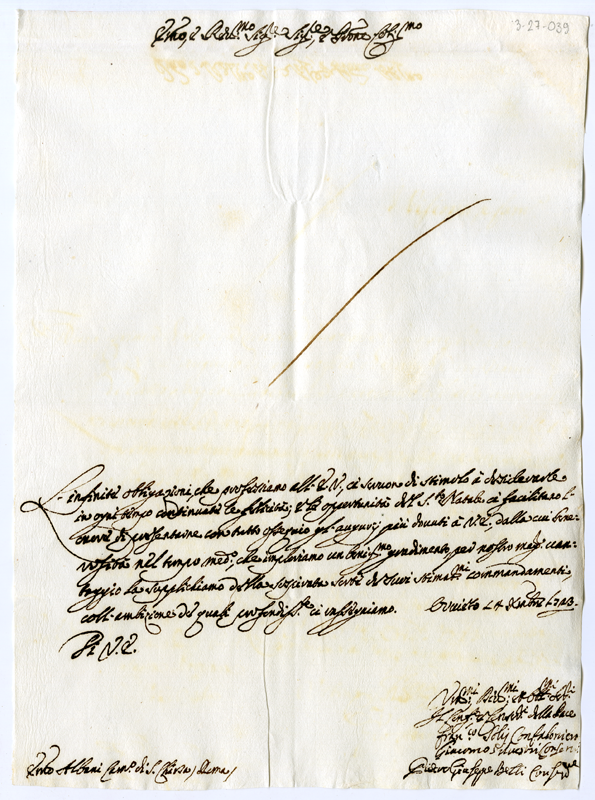 3-27-039
Emo, e Rev.mo Sig.re Sig.re, e Pne Col.mo
L'infinite obligazioni, che professiamo all'E.V., ci servon di stimolo à desiderarle
in ogni tempo continuate le felicità; e la opportunità del S. Natale ci facilita l'
onore di presentarne con tutto ossequio gl'augurj più dovuti à V.E., dalla cui bene-
nel tempo med.o, che imploriamo un benig.mo gradimento per nostro mag.r van-
taggio la supplichiamo della sospirata sorte de suoi stimat.mi commandamenti,
coll'ambizione de quali profondiss.te ci rassegniamo. Orvieto
Di V.E.
Um.mi, Dev.mi, et Obb.mi
della Pace
Confaloniere
Giacomo Conser.
Giuseppe Conser.
Albani Cam.o di S. Chiesa, Roma